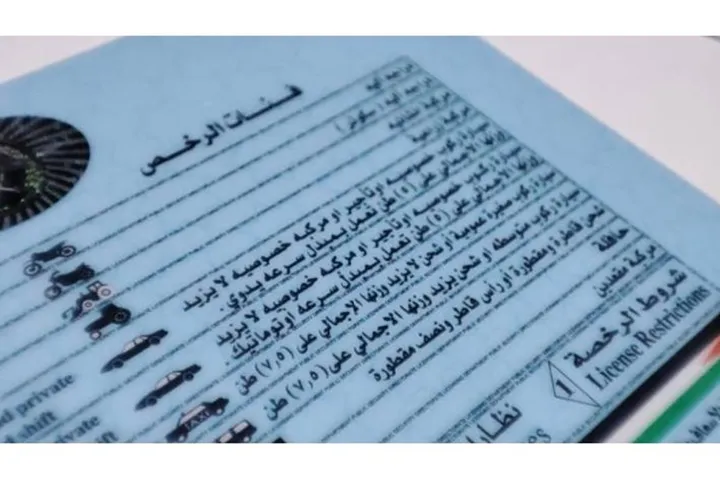 فئات الرخص
دراجة آلية
دراجة آلية ( سكوتر )
مركبة انشائية
مركبة زراعية
سيارة ركوب خصوصيه او تأجير او مركبه خصوصيه لا يزيد
وزنها الاجمالي على (٥) طن تعمل بمبدل سرعه يدوي.
سيارة ركوب خصوصيه او تأجير او مركبه خصوصيه لا يزيد
وزنها الاجمالي على (٥) طن تعمل بمبدل سرعه اوتوماتيك
سيارة ركوب صغيرة عمومية او شحن لا يزيد وزنها الاجمالي على (٧,٥) طن
سيارة ركوب متوسطه او شحن يزيد وزنها الاجمالي على (٧,٥) طن
شحن قاطرة ومقطورة او رأس قاطر ونصف مقطورة
حافلة
مركبة مقعدين
شروط الرخصة
License Restrictions
1
private
shift
private
TAXI